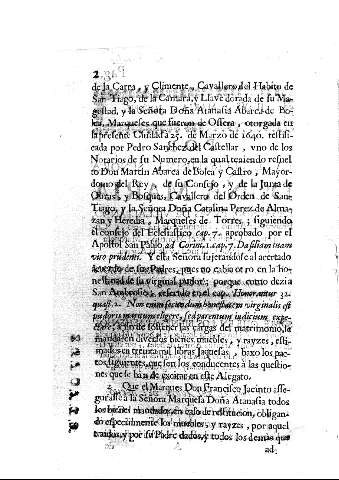 2
de la Carra, y Climente, Cavallero del Habito de
San-Tiago, de la Camara, y Llave dorada de su Ma-
gestad, y la Señora Doña Atanasia Abarca de Bo-
lea, Marqueses que fueron de Ossera, otorgada en
la presente Ciudad a 25. de Marzo de 1640. testifi-
cada por Pedro Sanchez del Castellar, vno de los
Notarios de su Numero, en la qual teniendo resuel-
to Don Martin Abarca de Bolea y Castro, Mayor-
domo del Rey, de su Consejo, y de la Junta de
Obras, y Bosques, Cavallero del Orden de San-
Tiago, y la Señora Doña Catalina Perez de Alma-
zan y Heredia, Marqueses de Torres; siguiendo
el consejo del Eclesiastico cap. 7. aprobado por el
Apostol San Pablo ad Corint. 1. cap. 7. Da filiam tuam
viro prudenti. Y esta Señora sujetandose al acertado
acuerdo de sus Padres, pues no cabia otro en la ho-
nestidad de su virginal pudor; porque como dezia
San Ambrosio, referido en el cap. Honorantur 32.
quæst. 2. Non enim
pudoris maritum eligere, sed parentum iudicium expe-
ctare, a fin de sobstener las cargas del matrimonio, le
mandaron diversos bienes muebles, y rayzes, esti-
mados en treinta mil libras Jaquesas, baxo los pac-
tos siguientes, que son los conducentes à las questio-
nes que se han de excitar en este Alegato.
2 Que el Marques Don Francisco Jacinto asse-
gurasse a la Señora Marquesa Doña Atanasia todos
los bienes mandados, en caso de restitucion, obligan-
do especialmente los muebles, y rayzes, por aquel
traidos, y por su Padre dados, y todos los demàs que
ad